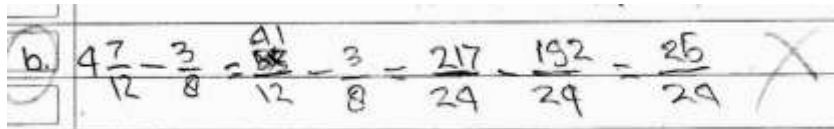 b. 4 7/12 - 3/8 = 41/12 - 3/8 = 217/24 - 192/24 = 25/24